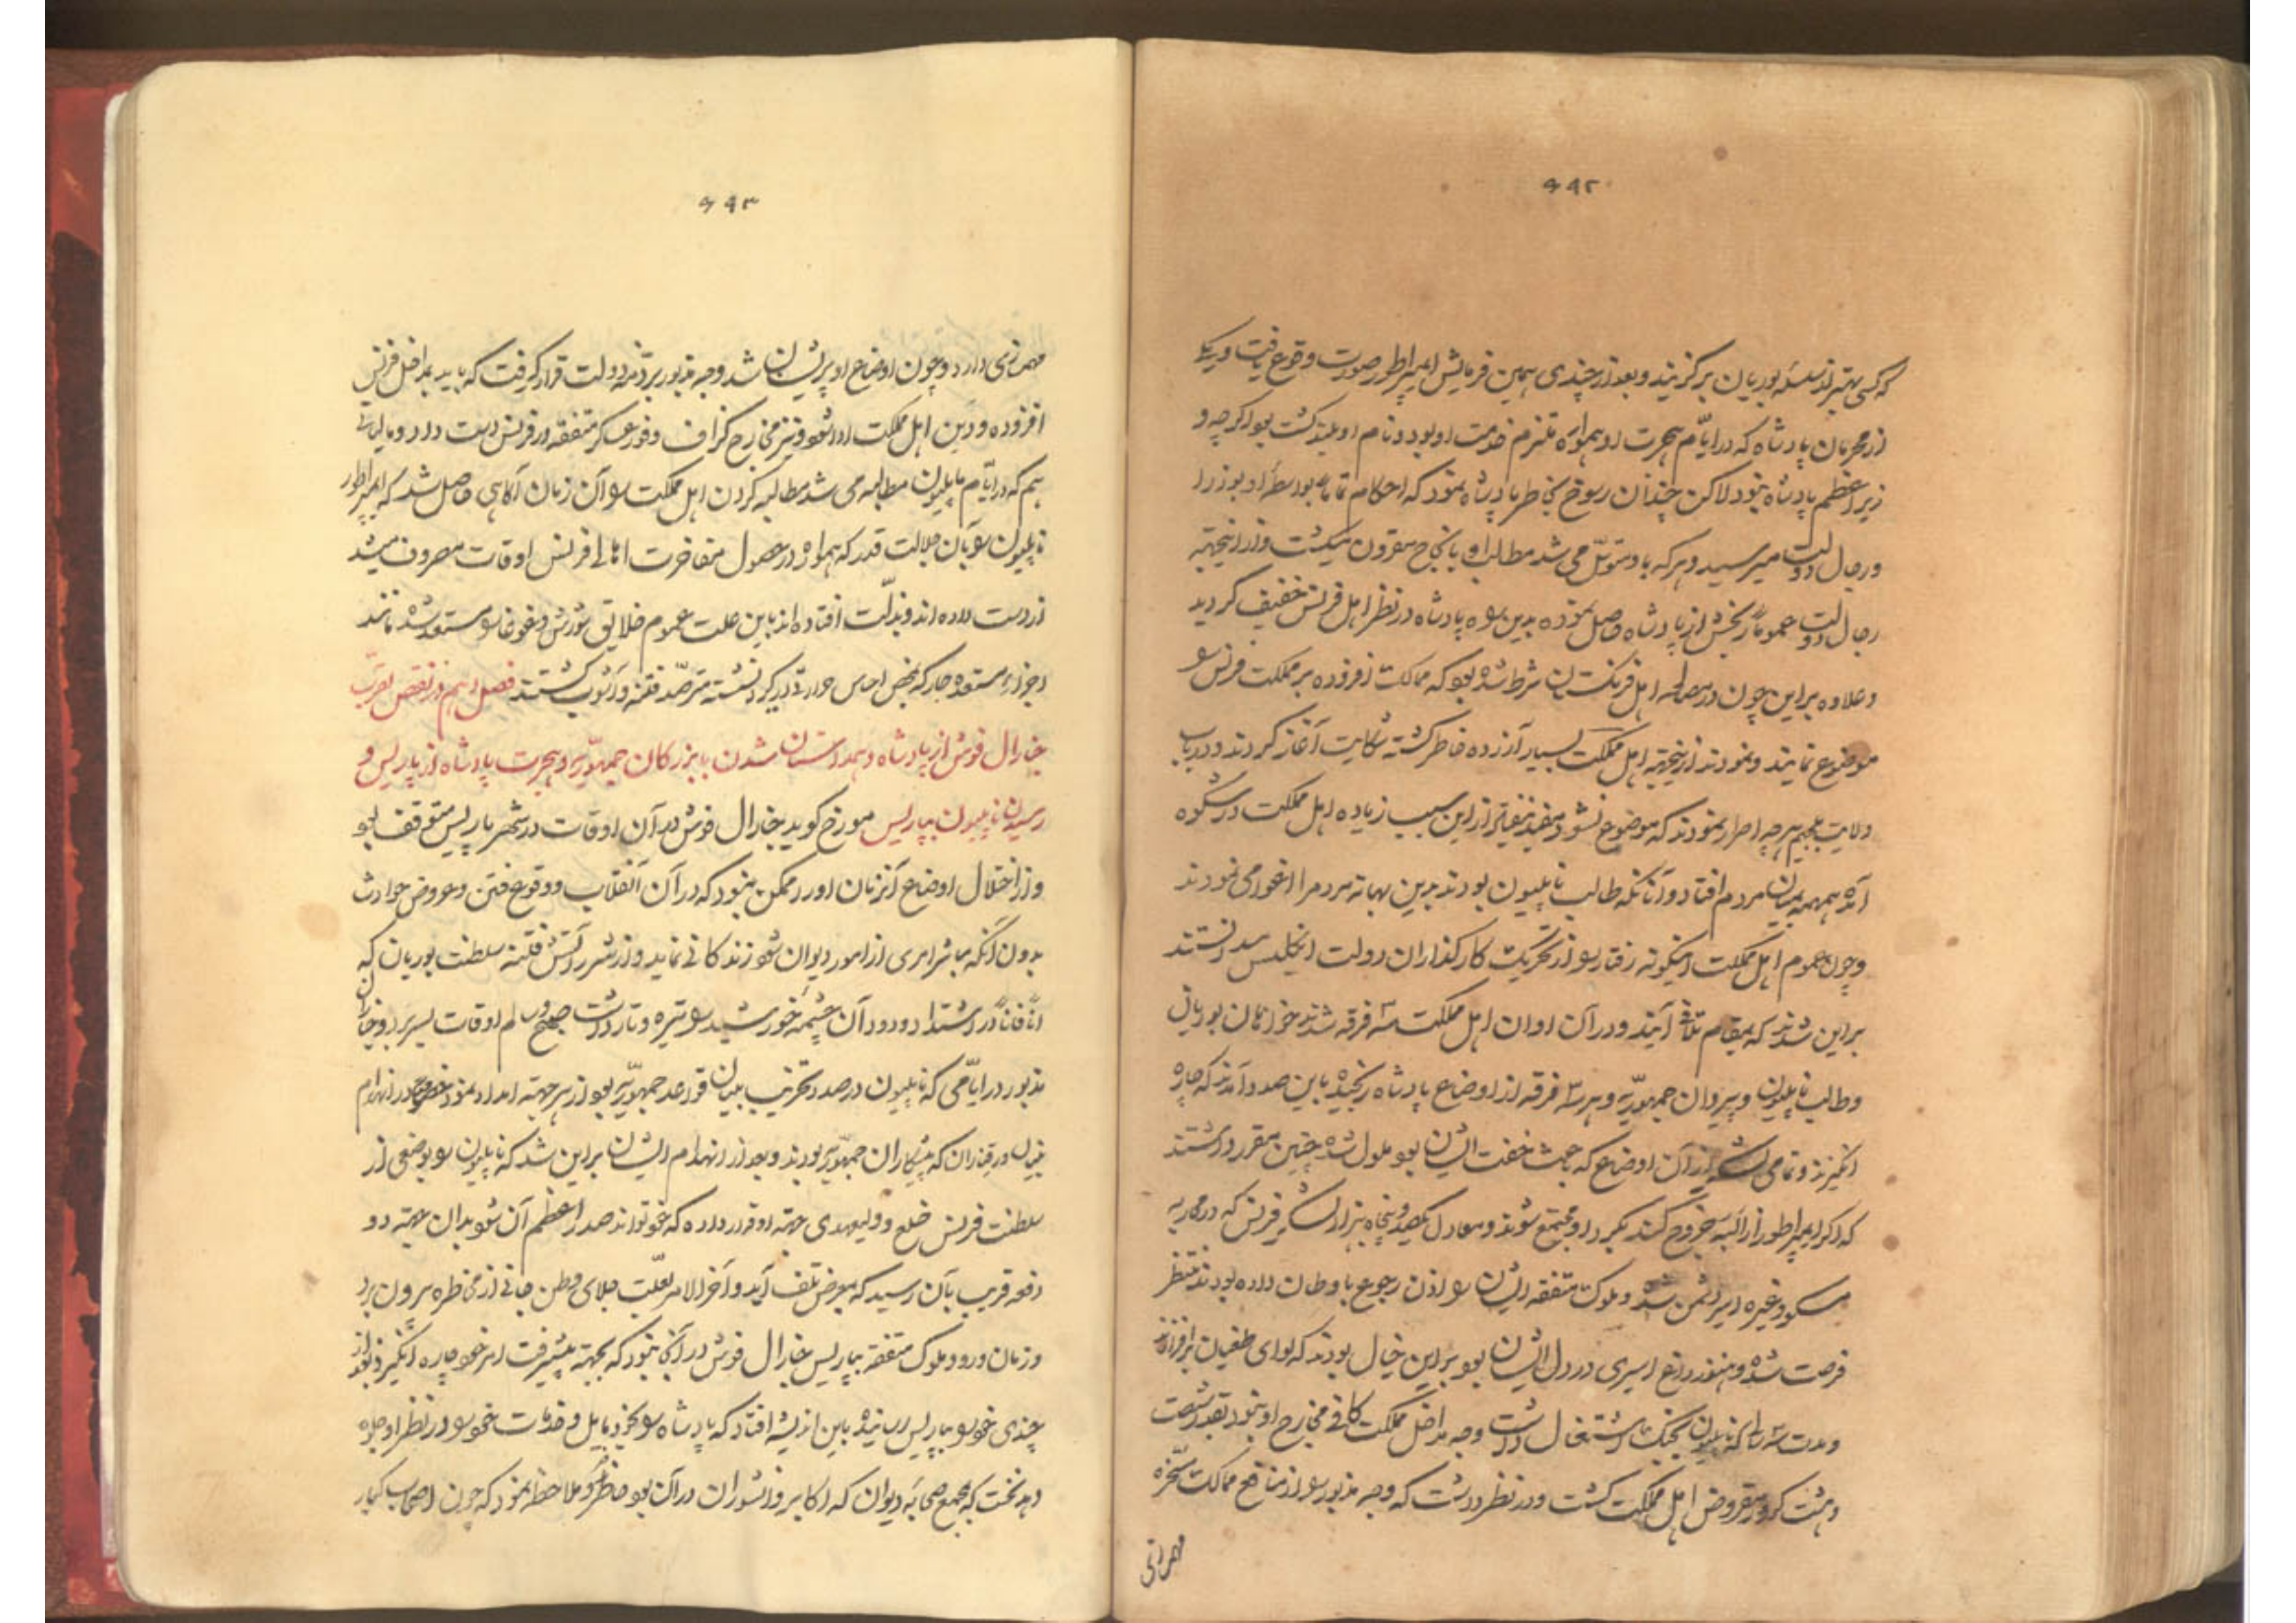 ۴۹۲
که کسی بهتر از سلسله بوربان برگزینند و بعد از چندی همین فرمایش امپراطور صورت وقوع یافت و دیگر
از محرمان پادشاه که در ایام هجرت او همواره ملتزم خدمت او بود و نام او بلند گشت بود اگرچه و
زیر اعظم پادشاه نبود لاکن چندان رسوخ بخاطر پادشاه نمود که احکام تمامه بواسطه او بوزرا
و رجال دولت میرسید و هر که باو متوسل می شد مطالب او بانجاح مقرون میگشت و از اینجهته
رجال دولت عموماً رنجش از پادشاه حاصل نموده بدین سوه پادشاه در نظر اهل فرنس خفیف گردید
و علاوه براین چون در مصالحه اهل فرنگستان شرط شده بود که ممالک افزوده بر مملکت فرنس را
موضوع نمایند و نمودند از اینجهته اهل مملکت بسیار آزرده خاطر گشته شکایت آغاز کردند و درباب
ولایت بلجیم هرچه اصرار نمودند که موضوع نشود مفید نیفتاد از این سبب زیاده اهل مملکت در شکوه
آمده همهمه بمیان مردم افتاد و آنانکه طالب ناپلیون بودند بدین بهانه مردم را اغوا می نمودند
و چون عموم اهل مملکت اینگونه رفتار را از تحریک کارگذاران دولت انگلیس میدانستند
براین شدند که بمقام تلافی آیند و در آن اوان اهل مملکت سه فرقه شدند خواهان بوربان
و طالب ناپلیون و پیروان جمهوریه و هر سه فرقه از اوضاع پادشاه رنجیده باین صدد آمدند که چاره
انگیزند و تمامی لشکر از آن اوضاع که باعث خفت ایشان بود ملول شده چنین مقرر داشتند
که اگر امپراطور از البه خروج کند بگرد او مجتمع شوند و معادل یکصد و پنجاه هزار لشکر فرنس که در محاربه
مسکو و غیره اسیر دشمن شده و ملوک متفقه ایشان را اذن رجوع باوطان داده بودند منتظر
فرصت شده و هنوز داغ اسیری در دل ایشان بود براین خیال بودند که لوای طغیان برافرازند
و مدت سه سال که ناپلیون بجنگ اشتغال داشت وجه مداخل مملکت کافی مخارج او نبود بقدر شصت
و هشت کرور مقروض اهل مملکت گشت و در نظر داشت که وجه مذبور را از منافع ممالک مسخره
۴۹۳
دارد و چون اوضاع او پریشان شد وجه مذبور بر ذمه دولت قرار گرفت که باید بمداخل فرنس
افزوده و دین اهل مملکت ادا شود و نیز مخارج گزاف و فوری که عسکر متفقه در فرنس دست داد و مالیاتی
هم که در ایام ناپلیون مطالبه می شد مطالبه کردن اهل مملکت را آن زمان آگاهی حاصل شد که امپراطور
ناپلیون را بآن جلالت قدر که همواره در حصول مفاخرت اهالی فرنس اوقات مصروف میشد
از دست داده اند و بذلت افتاده اند باین علت عموم خلایق شورش و غوغا را مستعد شده مانند
اجزای مستعده که بمحض احساس حرارتی درگیرد نشسته مترصد فتنه و آشوب گشتند فصل دهم در نقض تقرب
جنارال فوش از پادشاه و همداستان شدن با بزرگان جمهوریه و هجرت پادشاه از پاریس و
رسیدن ناپلیون بپاریس مورخ گوید جنارال فوش در آن اوقات در شهر پاریس متوقف بود
و از اختلال اوضاع آنزمان او را ممکن نبود که در آن انقلاب و وقوع فتن و عروض حوادث
بدون آنکه مباشر امری از امور دیوان شود زندگانی نماید و از شرر آتش فتنه سلطنت بوربان که
آناً فآناً در اشتداد و دود آن چشمه خورشید را تیره و تار داشت اوقات بسر برد و جنارال
مذبور در ایامی که ناپلیون درصدد تخریب بنیان قواعد جمهوریه بود از هر جهته امداد نمود در انهدام
که پیشکاران جمهوریه بودند و بعد از انهدام ایشان براین شد که ناپلیون را بوضعی از
سلطنت فرنس خلع و ولیعهدی جهته او قرار داده که خود تواند صدر اعظم آن شود بدان جهته دو
دفعه قریب بآن رسید که بمعرض تلف آید و آخر الامر بعلت جلای وطن جانی از مخاطره بیرون برد
و زمان ورود ملوک متفقه بپاریس جنارال فوش در آنجا نبود که بجهته پیشرفت امر خود چاره انگیزد بعد از
چندی خود را بپاریس رسانیده باین اندیشه افتاد که پادشاه را بخود مایل و خدمات خود را در نظر او جلوه
دهد نخست که بمجمع صحابه دیوان که اکابر و دانشوران در آن بود حاضر و ملاحظه نمود که چون اصحاب کبار